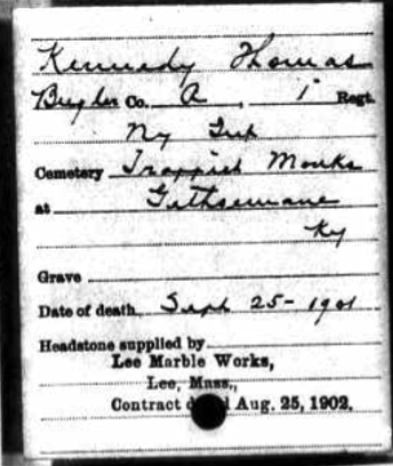 Kennedy Thomas
Bugler Co. A, 1" Regt.
Ny Inf
Cemetery Trappist Monks
at Gethsemane
Ky
Grave
Date of death, Sept 25-1901
Headstone supplied by
Lee Marble Works,
Lee, Mass.,
Contract Aug. 25, 1902.